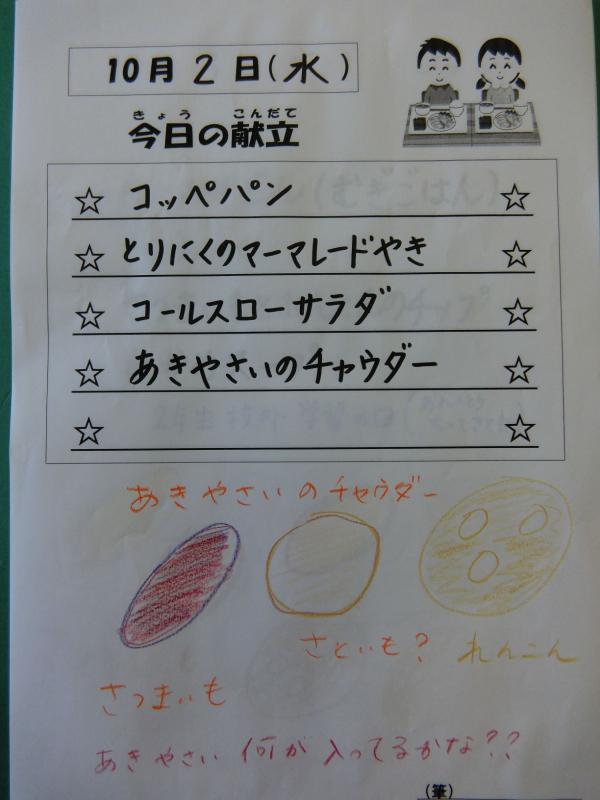 10月2日(水)
きょう こんだて
今日の献立
☆ コッペパン ☆
☆ とりにくのマーマレードやき ☆
☆ コールスローサラダ ☆
☆ あきやさいのチャウダー ☆
☆ ☆
あきやさいのチャウダー
さといも? れんこん
さつまいも
あきやさい 何が入ってるかな??
(筆)